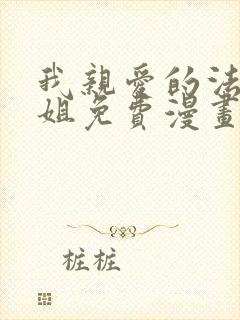 我親愛的法
姐免費漫畫
桩桩